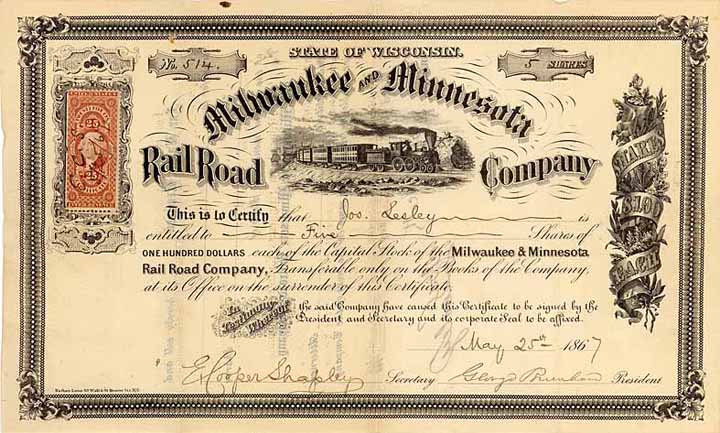 STATE OF WISCONSIN.
No. 514.
5 SHARES
Milwaukee AND Minnesota
Rail Road Company
25
25
SHARES
$100
EACH
This is to Certify that Jos. Lesley is
entitled to Five Shares of
ONE HUNDRED DOLLARS each of the Capital Stock of the Milwaukee & Minnesota
Rail Road Company, Transferable only on the Books of the Company,
at its Office on the surrender of this Certificate.
In Testimony Whereof
the said Company have caused this Certificate to be signed by the
President and Secretary and its corporate Seal to be affixed.
May 25th 1867
E. Cooper Shapley Secretary President